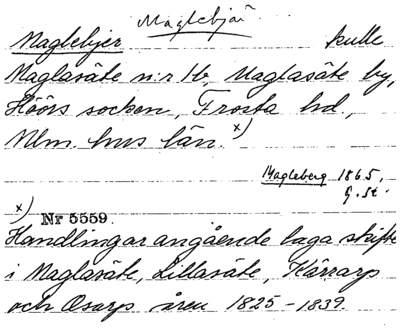 Maglebjär
Maglebjer kulle
Maglasäte n:r 1b, Maglasäte by,
Höörs socken, Frosta hd.,
Mlm. hus län. x)
Magleberg 1865,
G. St.
x) Nr 5559.
Handlingar angående laga skifte
i Maglasäte, Lillasäte, Kärrarp
och Osarp åren 1825-1839.